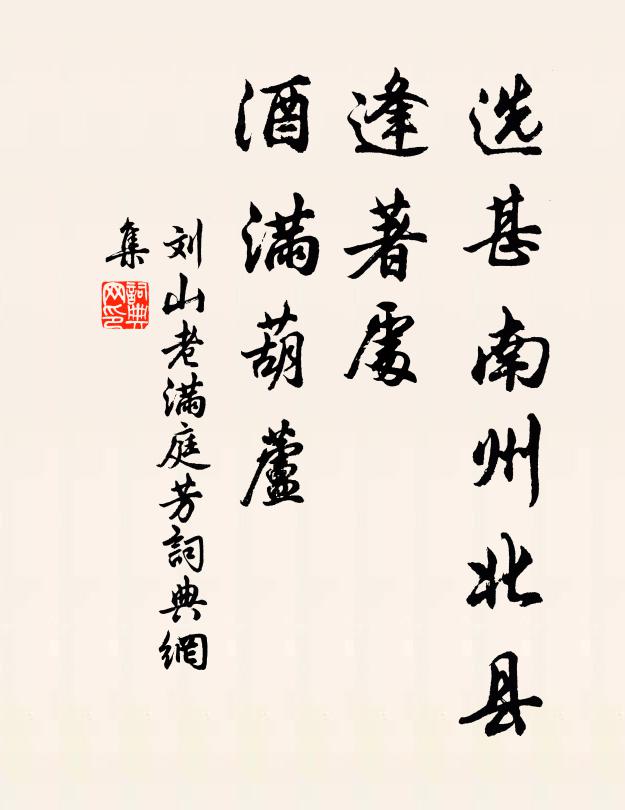 选甚南州北县
逢著處
酒满葫蘆
刘山老满庭芳詞典網
集
詞典
网印